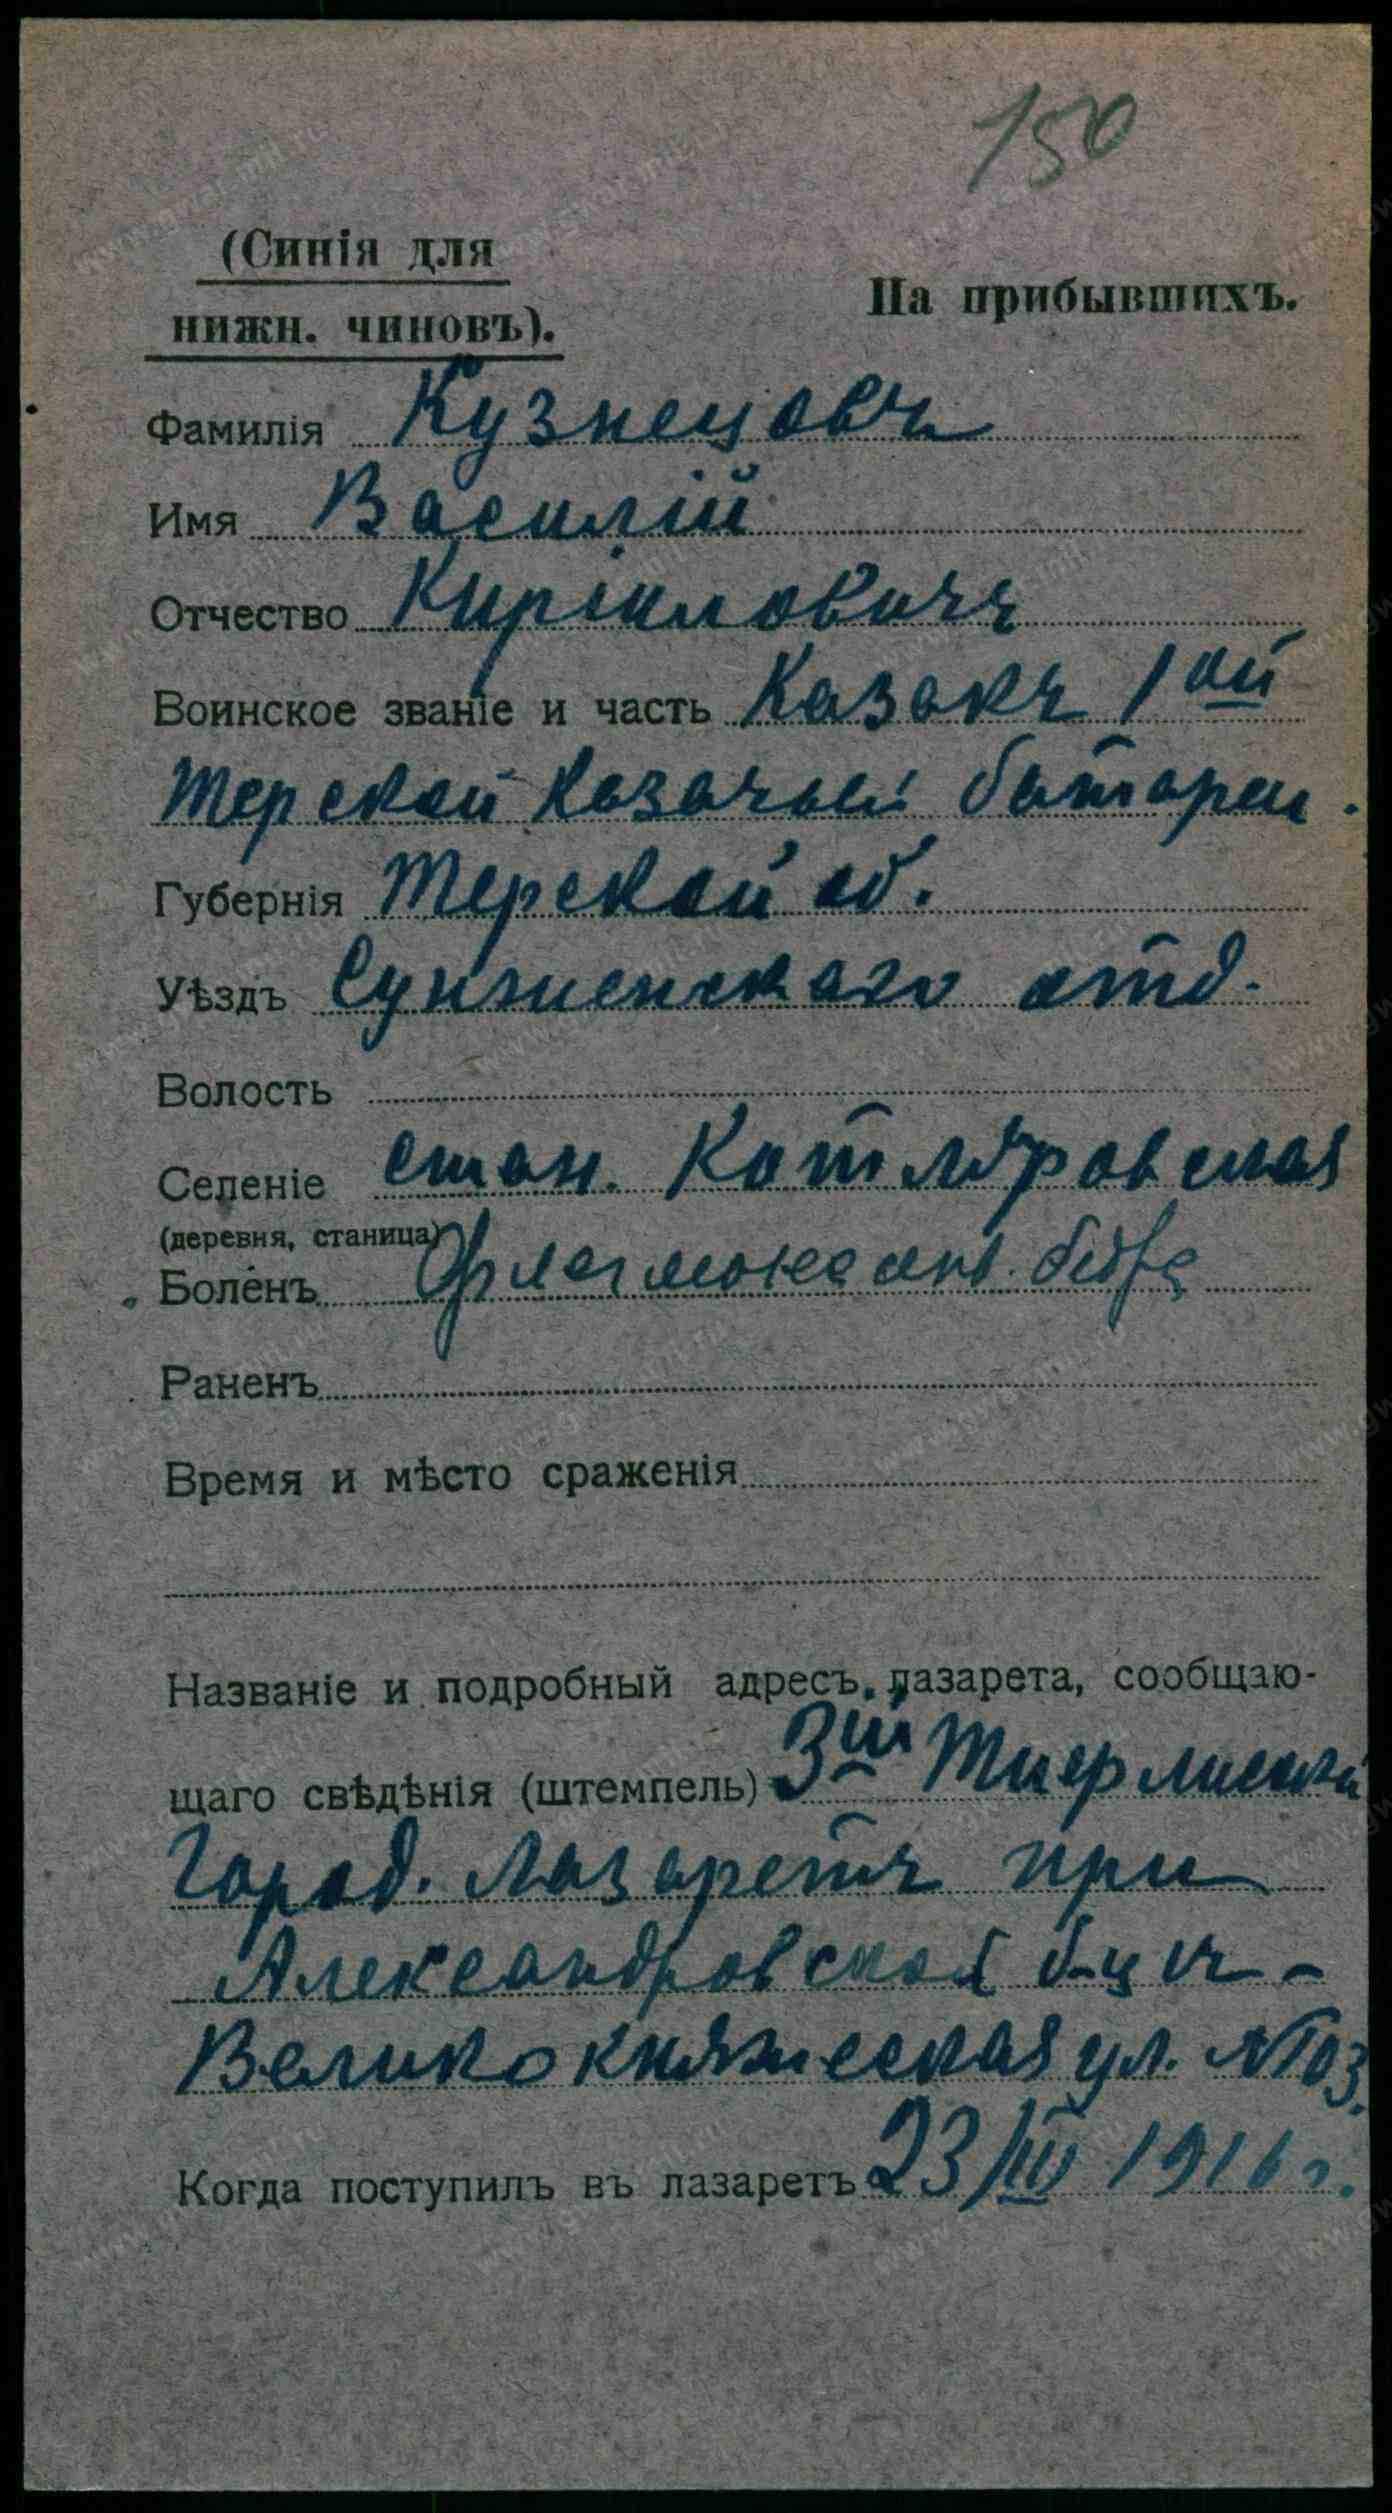 150
(Синія для
нижн. чиновъ).
На прибывшихъ.
Фамилія Кузнецовъ
Имя Василій
Отчество Киріиловичъ
Воинское званіе и часть Казакъ 1ой
Терской казачьей батареи.
Губернія Терской об.
Уѣздъ Сунженскаго отд.
Волость
Селеніе стан. Котляровская
(деревня, станица)
Боленъ Флегмона
Раненъ
Время и мѣсто сраженія
Названіе и подробный адресъ лазарета, сообщаю-
щаго свѣдѣнія (штемпель) 3ій
Город. Лазаретъ при
Александровской б-цѣ -
Великокняжеская ул. №103.
Когда поступилъ въ лазаретъ 23/III 1916 г.